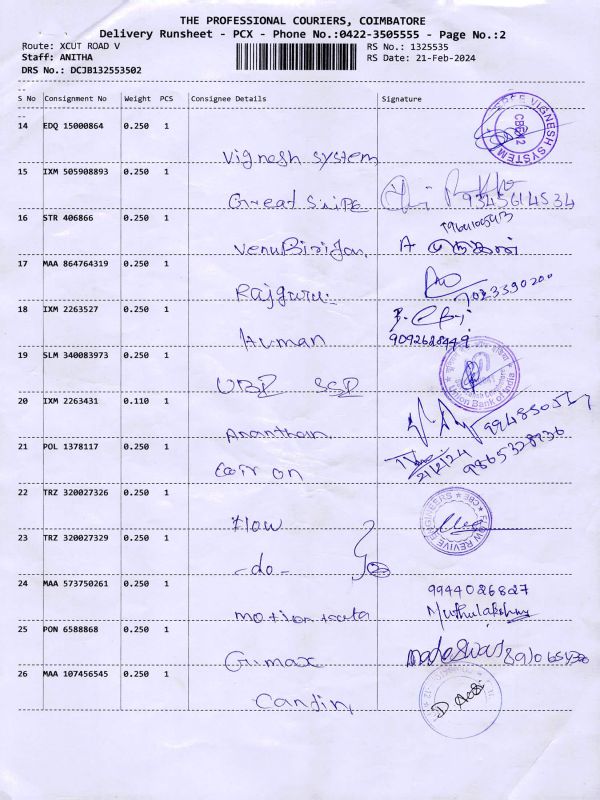 THE PROFESSIONAL COURIERS, COIMBATORE
Delivery Runsheet - PCX - Phone No.:0422-3505555 - Page No.:2
Route: XCUT ROAD V
RS No.: 1325535
Staff: ANITHA
RS Date: 21-Feb-2024
DRS No.: DCJB132553502
S No Consignment No Weight PCS Consignee Details Signature
14 EDQ 15000864 0.250 1 Vignesh System
VIGNESH SYSTEM CBE-12
15 IXM 505908893 0.250 1 Great Snipe 9345614534
16 STR 406866 0.250 1
17 MAA 864764319 0.250 1 Rajguru 7023390200
18 IXM 2263527 0.250 1 Auman
9092628449
19 SLM 340083973 0.250 1 UBI SSI
Union Bank of India
20 IXM 2263431 0.110 1 Anantham
21 POL 1378117 0.250 1 Coir on 21/2/24 9865328936
22 TRZ 320027326 0.250 1 Flow
FLOW REVIVE ENGINEERS CBE
23 TRZ 320027329 0.250 1 -do-
24 MAA 573750261 0.250 1 9944026827
Muthulakshmi
25 PON 6588868 0.250 1 Gumax
26 MAA 107456545 0.250 1